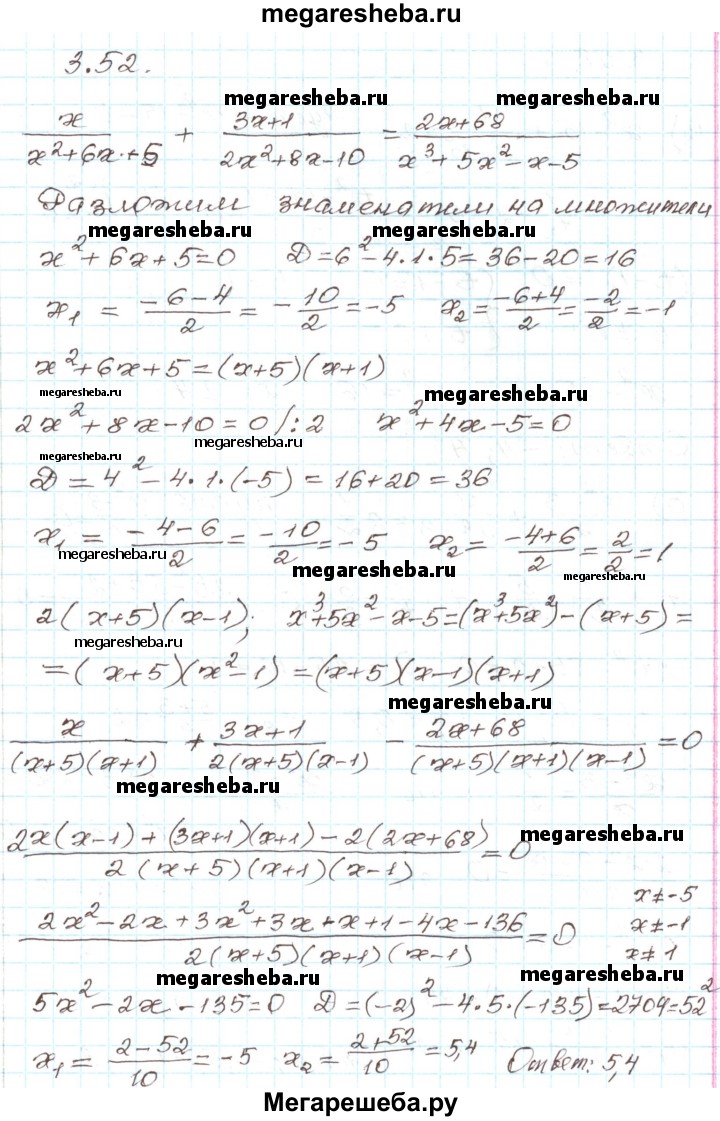 megaresheba.ru
3.52.
megaresheba.ru megaresheba.ru
x/(x²+6x+5) + (3x+1)/(2x²+8x-10) = (2x+68)/(x³+5x²-x-5)
Разложим знаменатели на множители
megaresheba.ru megaresheba.ru
x²+6x+5=0 D=6²-4·1·5=36-20=16
x₁ = (-6-4)/2 = -10/2 = -5 x₂ = (-6+4)/2 = -2/2 = -1
x²+6x+5=(x+5)(x+1)
megaresheba.ru megaresheba.ru
2x²+8x-10=0 /:2 x²+4x-5=0
megaresheba.ru
megaresheba.ru
D = 4²-4·1·(-5) = 16+20 = 36
x₁ = (-4-6)/2 = -10/2 = -5 x₂ = (-4+6)/2 = 2/2 = 1
megaresheba.ru megaresheba.ru
2(x+5)(x-1); x³+5x²-x-5=(x³+5x²)-(x+5)=
megaresheba.ru
=(x+5)(x²-1)=(x+5)(x-1)(x+1)
megaresheba.ru
x/((x+5)(x+1)) + (3x+1)/(2(x+5)(x-1)) - (2x+68)/((x+5)(x+1)(x-1)) =0
megaresheba.ru
(2x(x-1)+(3x+1)(x+1)-2(2x+68))/(2(x+5)(x+1)(x-1)) =0
megaresheba.ru
x≠-5
x≠-1
x≠1
(2x²-2x+3x²+3x+x+1-4x-136)/(2(x+5)(x+1)(x-1)) =0
megaresheba.ru megaresheba.ru
5x²-2x-135=0 D=(-2)²-4·5·(-135)=2704=52²
x₁ = (2-52)/10 = -5 x₂ = (2+52)/10 = 5,4 Ответ: 5,4
Мегарешеба.ру